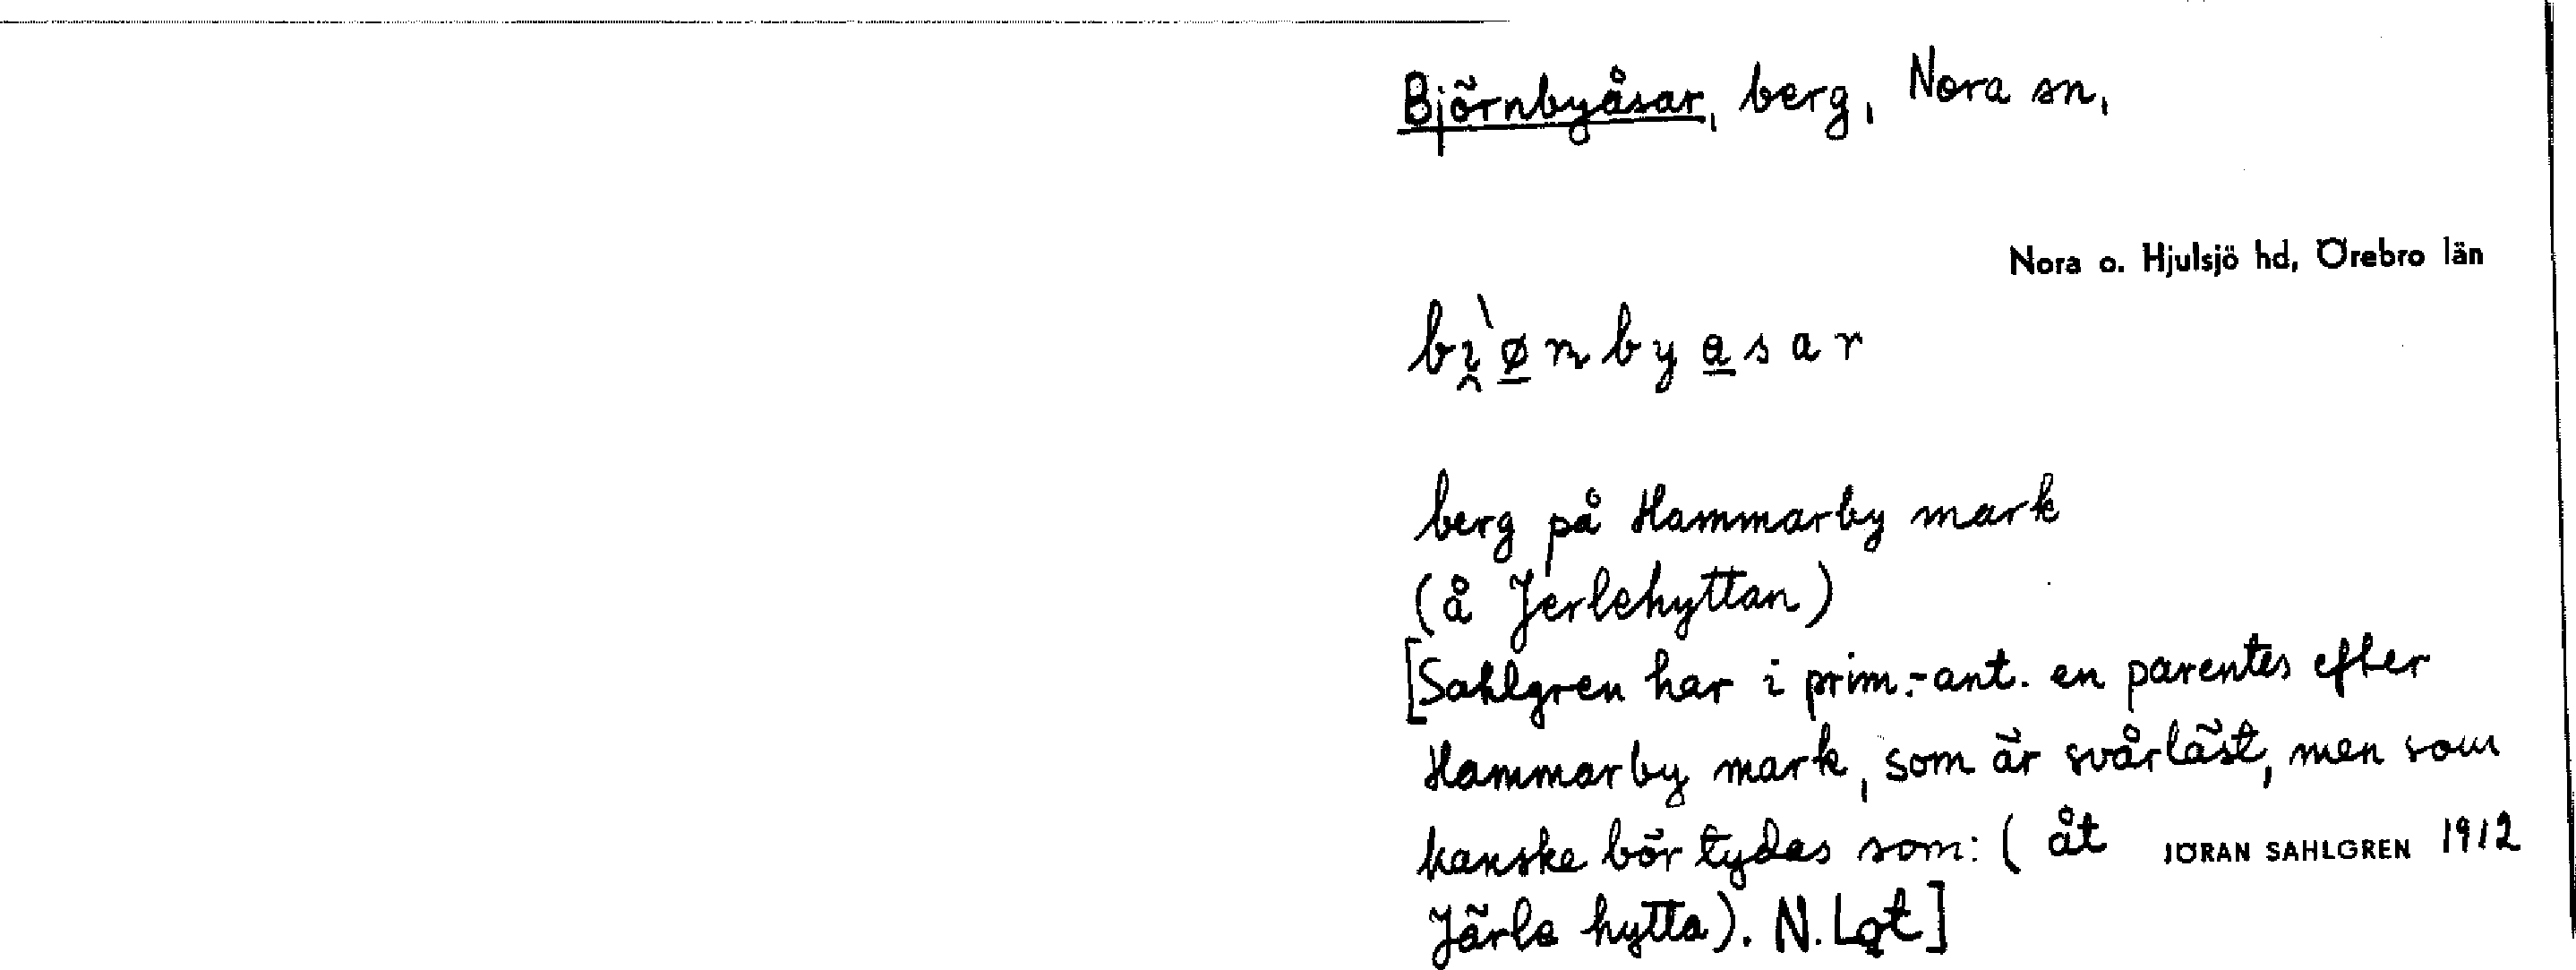 Björnbyåsar, berg, Nora sn,
Nora o. Hjulsjö hd, Örebro län
bì̯ø̲nbya̲sar
berg på Hammarby mark
(å Jerlehyttan)
[Sahlgren har i prim.-ant. en parentes efter
Hammarby mark, som är svårläst, men som
kanske bör tydas som: ( åt JÖRAN SAHLGREN 1912
Järle hytta). N. Lqt]